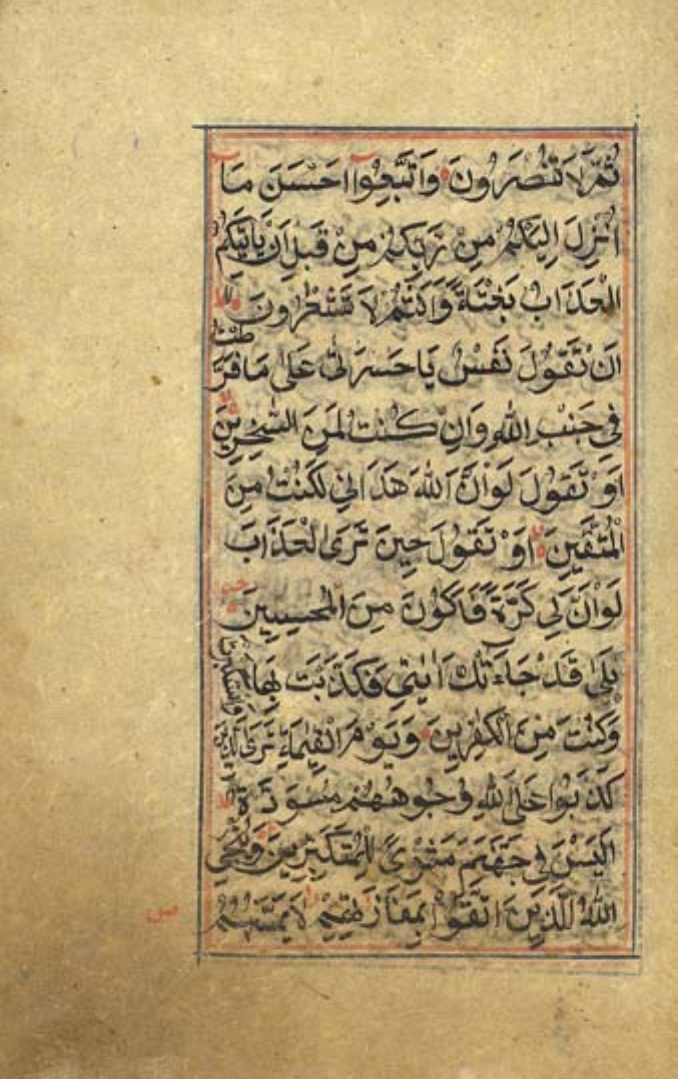 ثُمَّ لَا تُنْصَرُونَ وَاتَّبِعُوا اَحْسَنَ مَا
اُنْزِلَ اِلَيْكُمْ مِنْ رَبِّكُمْ مِنْ قَبْلِ اَنْ يَاْتِيَكُمُ
الْعَذَابُ بَغْتَةً وَاَنْتُمْ لَا تَشْعُرُونَ
اَنْ تَقُولَ نَفْسٌ يَا حَسْرَتٰى عَلٰى مَا فَرَّطْتُ
فِى جَنْبِ اللّٰهِ وَاِنْ كُنْتُ لَمِنَ السّٰخِرِينَ
اَوْ تَقُولَ لَوْ اَنَّ اللّٰهَ هَدَانِى لَكُنْتُ مِنَ
الْمُتَّقِينَ اَوْ تَقُولَ حِينَ تَرَى الْعَذَابَ
لَوْ اَنَّ لِى كَرَّةً فَاَكُونَ مِنَ الْمُحْسِنِينَ
بَلٰى قَدْ جَاءَتْكَ اٰيٰتِى فَكَذَّبْتَ بِهَا وَاسْتَكْبَرْتَ
وَكُنْتَ مِنَ الْكٰفِرِينَ وَيَوْمَ الْقِيٰمَةِ تَرَى الَّذِينَ
كَذَبُوا عَلَى اللّٰهِ وُجُوهُهُمْ مُسْوَدَّةٌ
اَلَيْسَ فِى جَهَنَّمَ مَثْوًى لِلْمُتَكَبِّرِينَ وَيُنَجِّى
اللّٰهُ الَّذِينَ اتَّقَوْا بِمَفَازَتِهِمْ لَا يَمَسُّهُمُ